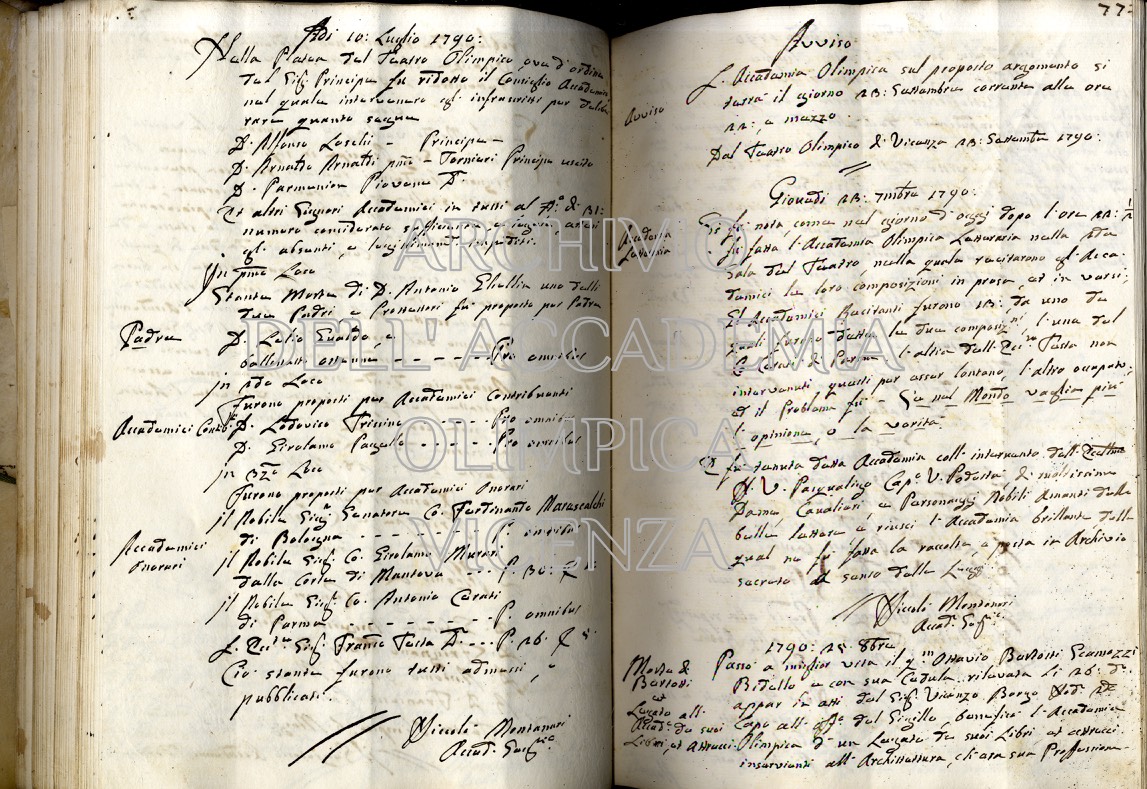 Adi 10: Luglio 1790:
Nella Platea del Teatro Olimpico, ove d'ordine
del Sig: Principe fu ridotto il Consiglio Accademico
nel quale intervenero gl'infrascritti per delibe
rare quanto segue
D. Alfonso Loschi - Principe -
D. Arnaldo Arnaldi pmo - Tornieri Principe uscito
D. Parmenion Piovene D.
Et altri Signori Accademici in tutti al N:o di 31:
numero considerato sufficiente
gl'absenti, e legitimam: impediti.
Jn pmo Loco
Stante Morte di D. Antonio uno delli
due Padri, e Protettori fu proposto per Padre
Padre
D. Lelio Gualdo, e
ballottato ottenne - - - - - - Pro omnibus
jn 2do Loco
Furono proposti per Accademici Contribuenti
Accademici Contrib:
D. Lodovico Trissino - - - - - - Pro omnibus
D. Girolamo - - - - - - Pro omnibus
jn 3zo Loco
Furono proposti per Accademici Onorari
Accademici
Onorari
jl Nobile Sig: Senatore Co. Ferdinando Marescalchi
di Bologna - - - - - - - P. omnibus
jl Nobile Sig: Co. Girolamo Murari
dalla Corte di Mantova - - - P. 30:
jl Nobile Sig: Co. Antonio Cerati
di Parma - - - - - - - P omnibus
L'Ecc:te Sig: Franc:o Testa D. - - - P. 26: 5:
Ciò stante furono tutti admessi, e
pubblicati.
Niccolò Montanari
Accad: Seg:rio
77:
Avviso
Avviso
L'Accademia Olimpica sul proposto argomento si
terrà il giorno 23: Settembre corrente alla ore
22:, e mezzo
Dal Teatro Olimpico di Vicenza 23: Settembre 1790:
Giovedì 23: 7mbre 1790:
Accademia
Letteraria
Si fa nota, come nel giorno d'oggi dopo l'ore 22: 1/2
fu fatta l'Accademia Olimpica Letteraria nella sda
Sala del Teatro, nella quale recitarono gl'Acca-
demici le loro composizioni in prosa, et in versi;
Gl'Accademici Recitanti furono 23: da uno de
quali furono dette le due composizni, l'una del
Co: Cerati di Parma, l'altra dell'Ecc:te Testa non
intervenuti, questi per esser lontano, l'altro occupato;
ed il Problema fù - Se nel Mondo vaglia più
l'opinione, o la verità.
Et fu tenuta detta Accademia coll'intervento dell'Eccellmo
N. V. Pasqualigo Cap:o V. Podestà, di moltissime
Dame, Cavalieri, e Personaggi Nobili Amanti delle
belle lettere, e riuscì l'Accademia brillante, della
qual ne fu fatta la raccolta, e posta in Archivio
secreto al senso delle Leggi
Niccolò Montanari
Accad: Seg:rio
1790: 25: 8bre
Morte di
Bertotti
et
Legato all'
Accad:a de suoi
Libri, et attrecci
Passò a miglior vita il q:m Ottavio Bertotti Scamozzi
Bidello, e con sua Cedula rilevata li 26: do
appar in atti del Sig: Vicenzo Borgo Nod:
Capo all'off:o del Sigillo, beneficò l'Accademia
Olimpica d'un Legato de suoi Libri, et attrecci
inservienti all'Architettura, ch'era sua Professione
ARCHIVIO
DELL'ACCADEMIA
OLIMPICA
VICENZA